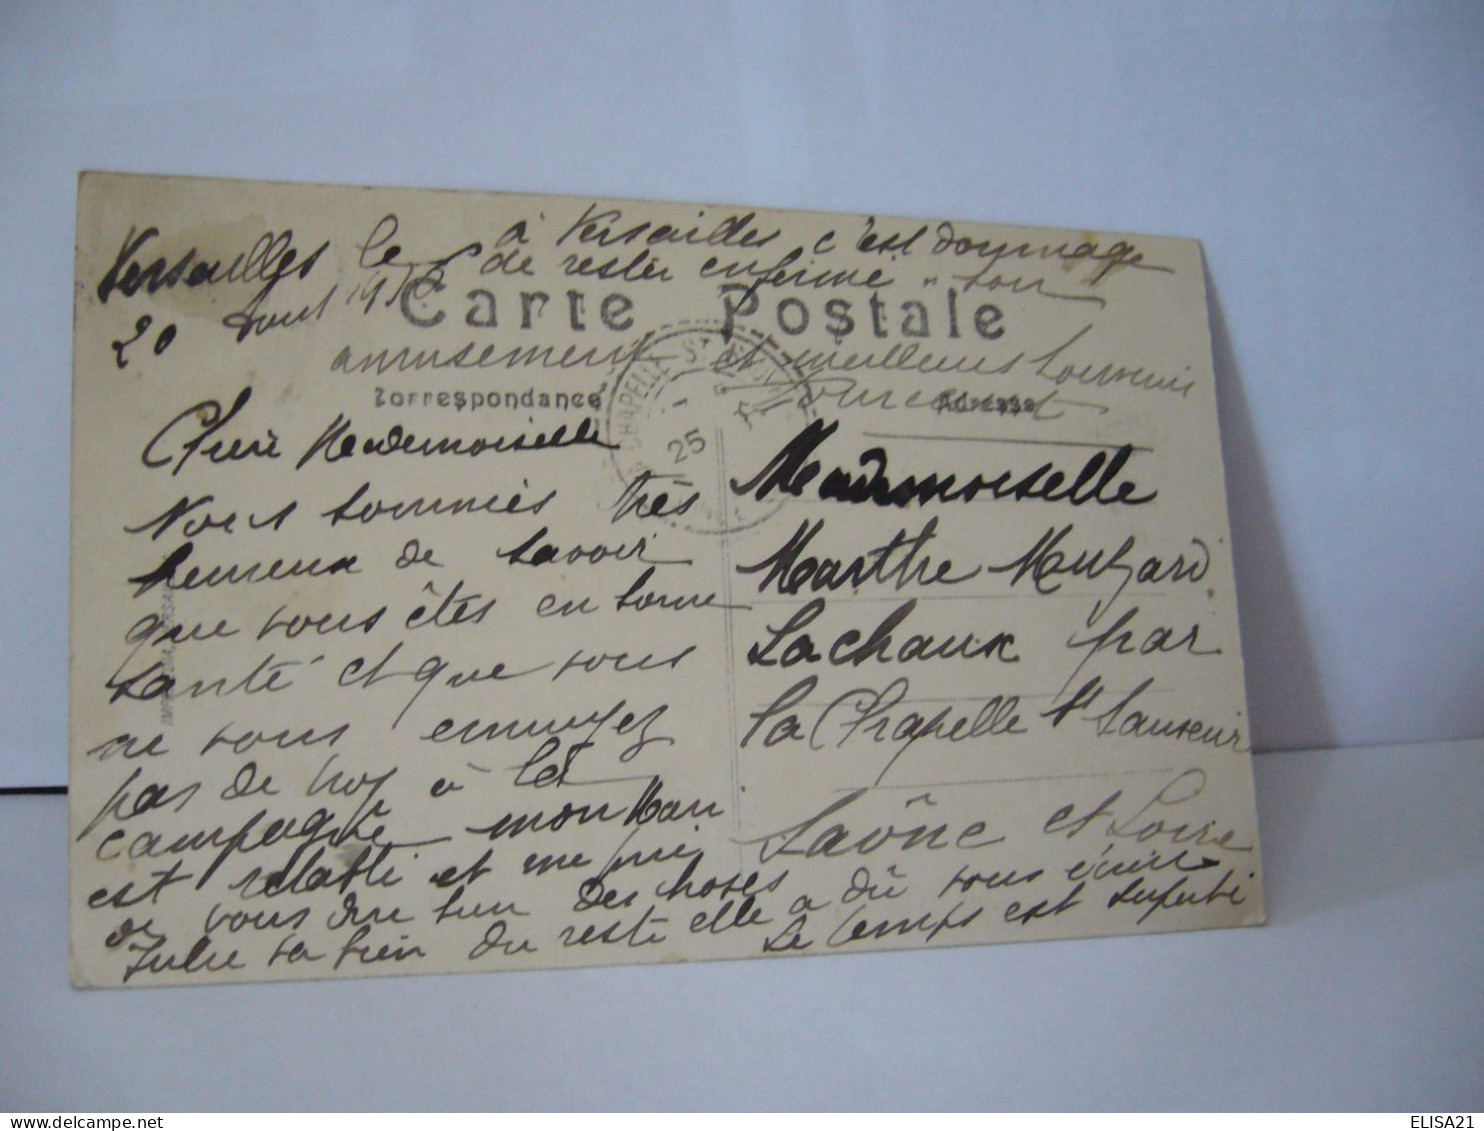 Versailles le
20 Aout 191
Carte Postale
Correspondance
Adresse
CHAPELLE ST
25
Chère Mademoiselle
Nous sommes très
heureux de savoir
que vous êtes en bonne
santé et que vous
ne vous ennuyez
pas de trop à la
campagne mon Mari
est rétabli et me prie
de vous dire bien des choses
Julie va bien du reste elle a dû vous écrire
Le temps est superbe
à Versailles c'est dommage
de rester enfermé bon
amusement et meilleurs souvenirs
Mademoiselle
Marthe Muzard
Lachaux par
La Chapelle St Sauveur
Saône et Loire
ELISA21